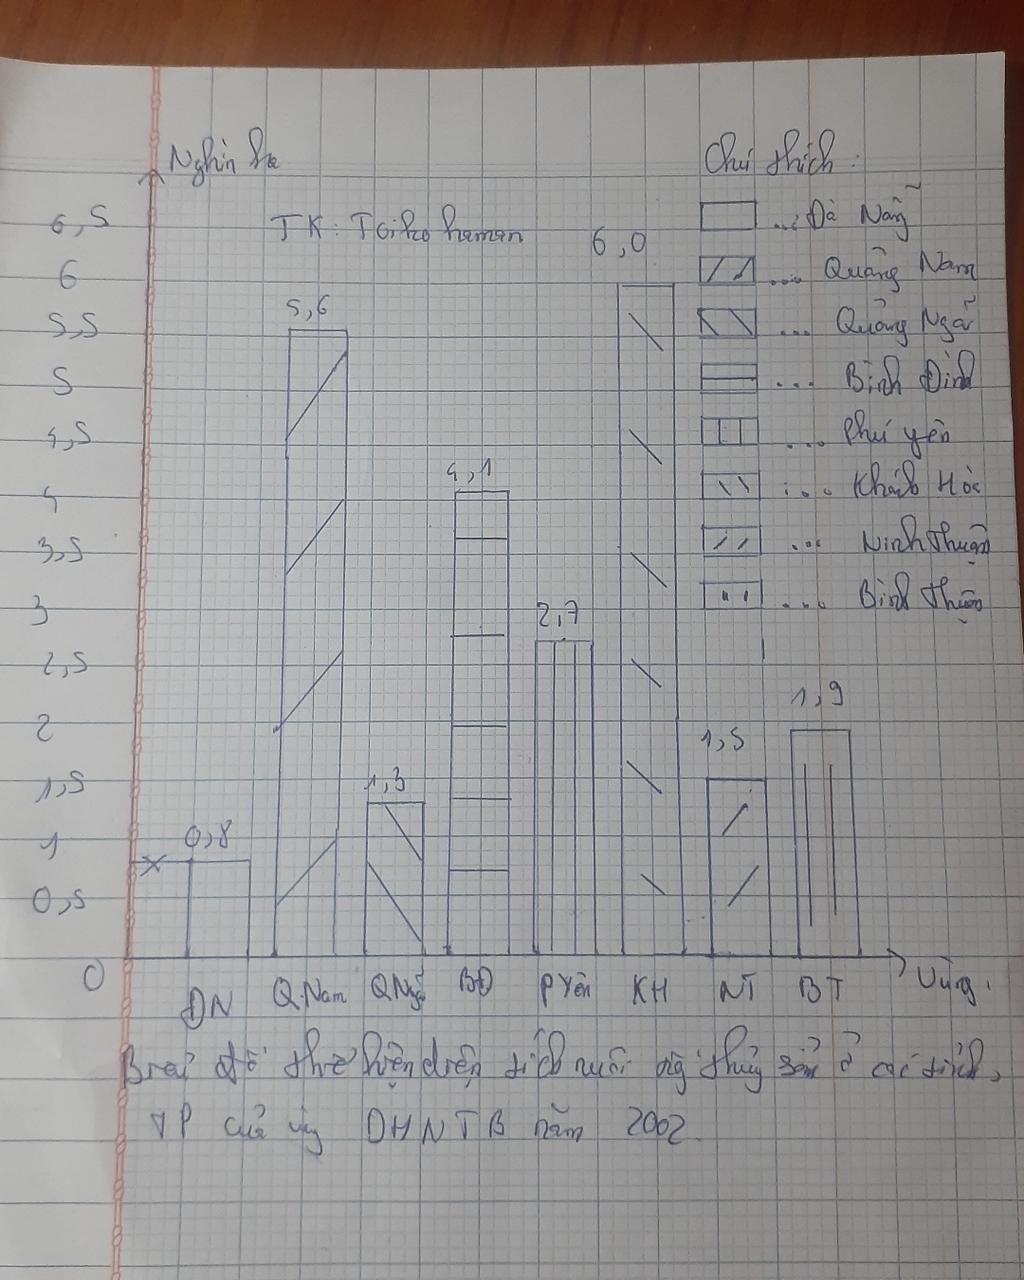 Nghìn ha
Chú thích:
6,5
TK: Toiko haman
6,0
... Đà Nẵng
6
5,6
... Quảng Nam
5,5
... Quảng Ngãi
5
... Bình Định
4,5
4,1
... Phú yên
4
... Khánh Hòa
3,5
... Ninh Thuận
3
2,7
... Bình Thuận
2,5
2
1,9
1,5
1,5
1,3
1
0,8
0,5
0
ĐN Q.Nam Q Ngãi BĐ P Yên KH NT BT Vùng.
Biểu đồ thể hiện diện tích nuôi trồng thủy sản ở các tỉnh,
TP của vùng DHNTB năm 2002.